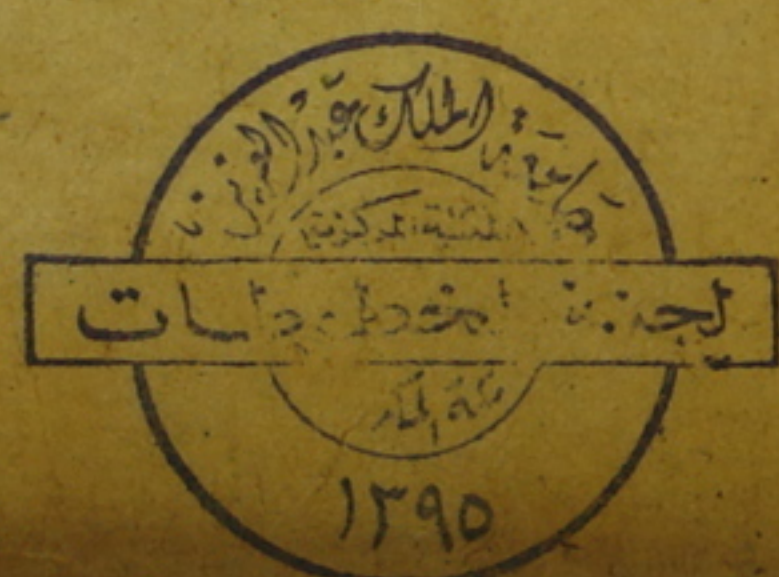 جامعة الملك عبد العزيز
المكتبة المركزية
لجنة المخطوطات
بمكة المكرمة
١٣٩٥